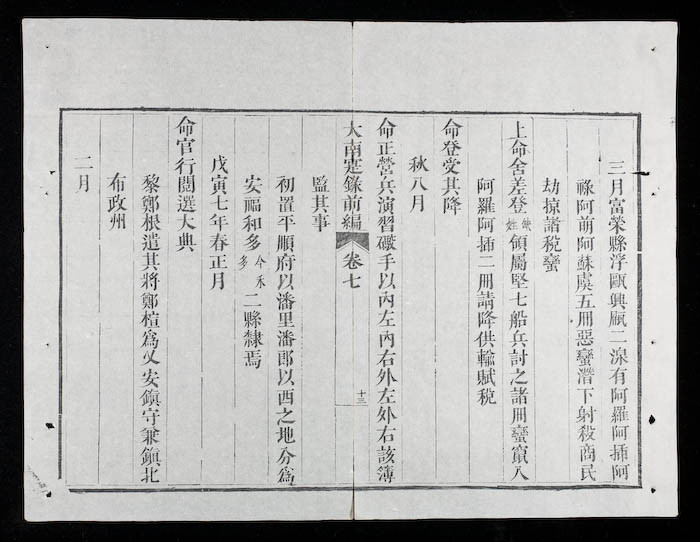 三月富榮縣浮甌興瓶二源有阿羅阿揷阿
祿阿萠阿蘇虞五冊惡蠻潛下射殺商民
劫掠諸稅蠻
上命舍差登缺姓領屬堅七船兵討之諸冊蠻竄入
阿羅阿揷二冊請降供輸賦稅
命登受其降
秋八月
命正營兵演習礮手以內左內右外左外右該簿
大南寔錄前編 卷七 十三
監其事
初置平順府以潘里潘郎以西之地分爲
安福和多今禾多二縣隸焉
戊寅七年春正月
命官行閱選大典
黎鄭根遣其將鄭楦爲乂安鎭守兼鎭北
布政州
二月